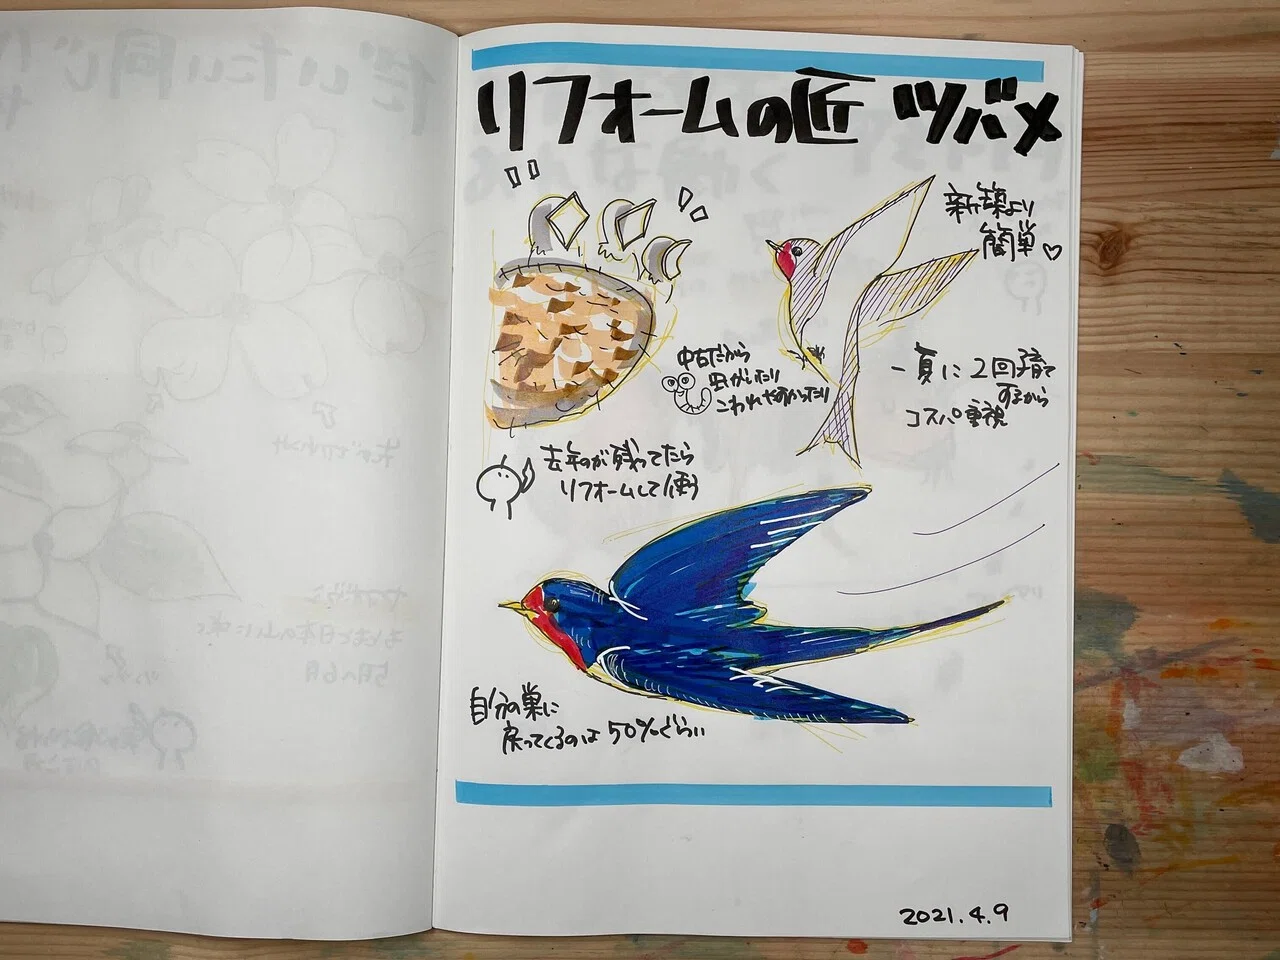 リフォームの匠 ツバメ
新築より
簡単♡
中古だから
虫がいたり
こわれやすかったり
一夏に2回子育て
するから
コスパ重視
去年のが残ってたら
リフォームして使う
自分の巣に
戻ってくるのは50%ぐらい
2021.4.9